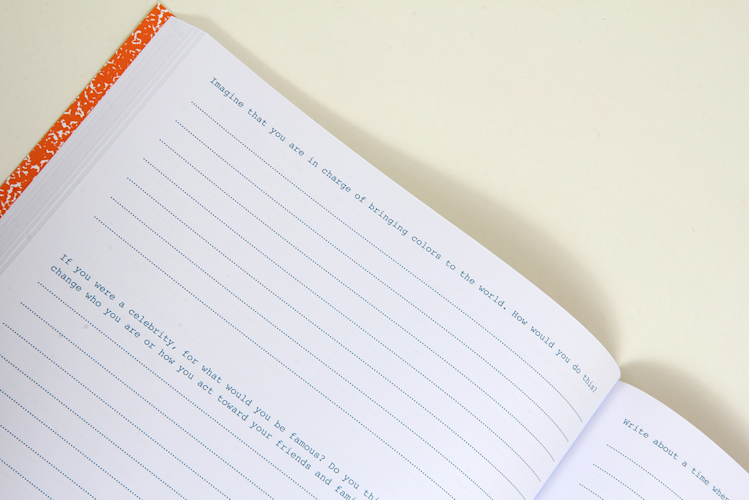 Imagine that you are in charge of bringing colors to the world. How would you do this?
If you were a celebrity, for what would you be famous? Do you thi
change who you are or how you act toward your friends and fami
Write about a time when